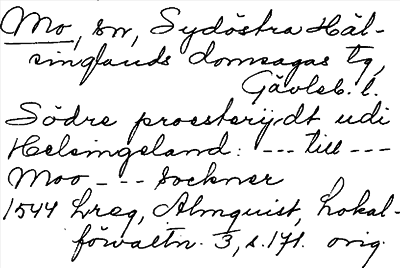 Mo, sn, Sydöstra Häl-
singlands domsagas tg,
Gävleb. l.
Södre proesterijdt udi
Helsingeland: --- till ---
Moo --- Sockner
1544 Lreg, Almquist, Lokal-
förvaltn. 3, s. 171. orig.